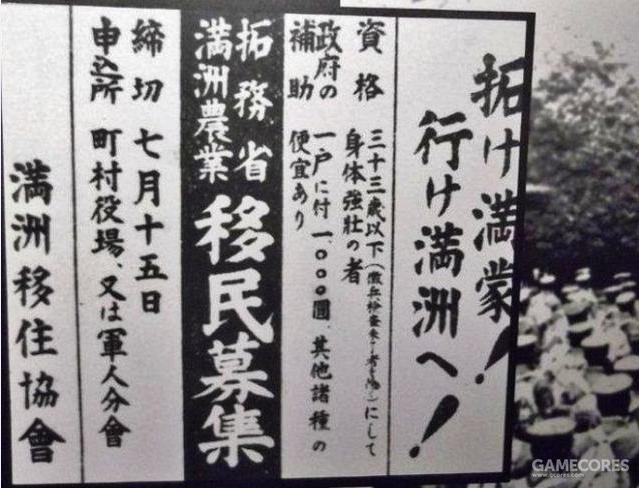 拓け満蒙!
行け満洲へ!
資格 三十三歳以下(徴兵検査)にして
身体強壮の者
政府の
補助 一戸に付一、〇〇〇圓、其他諸種の
便宜あり
拓務省
満洲農業
移民募集
締切 七月十五日
申込所 町村役場、又は軍人分會
満洲移住協會
GAMECORES
www.gcores.com